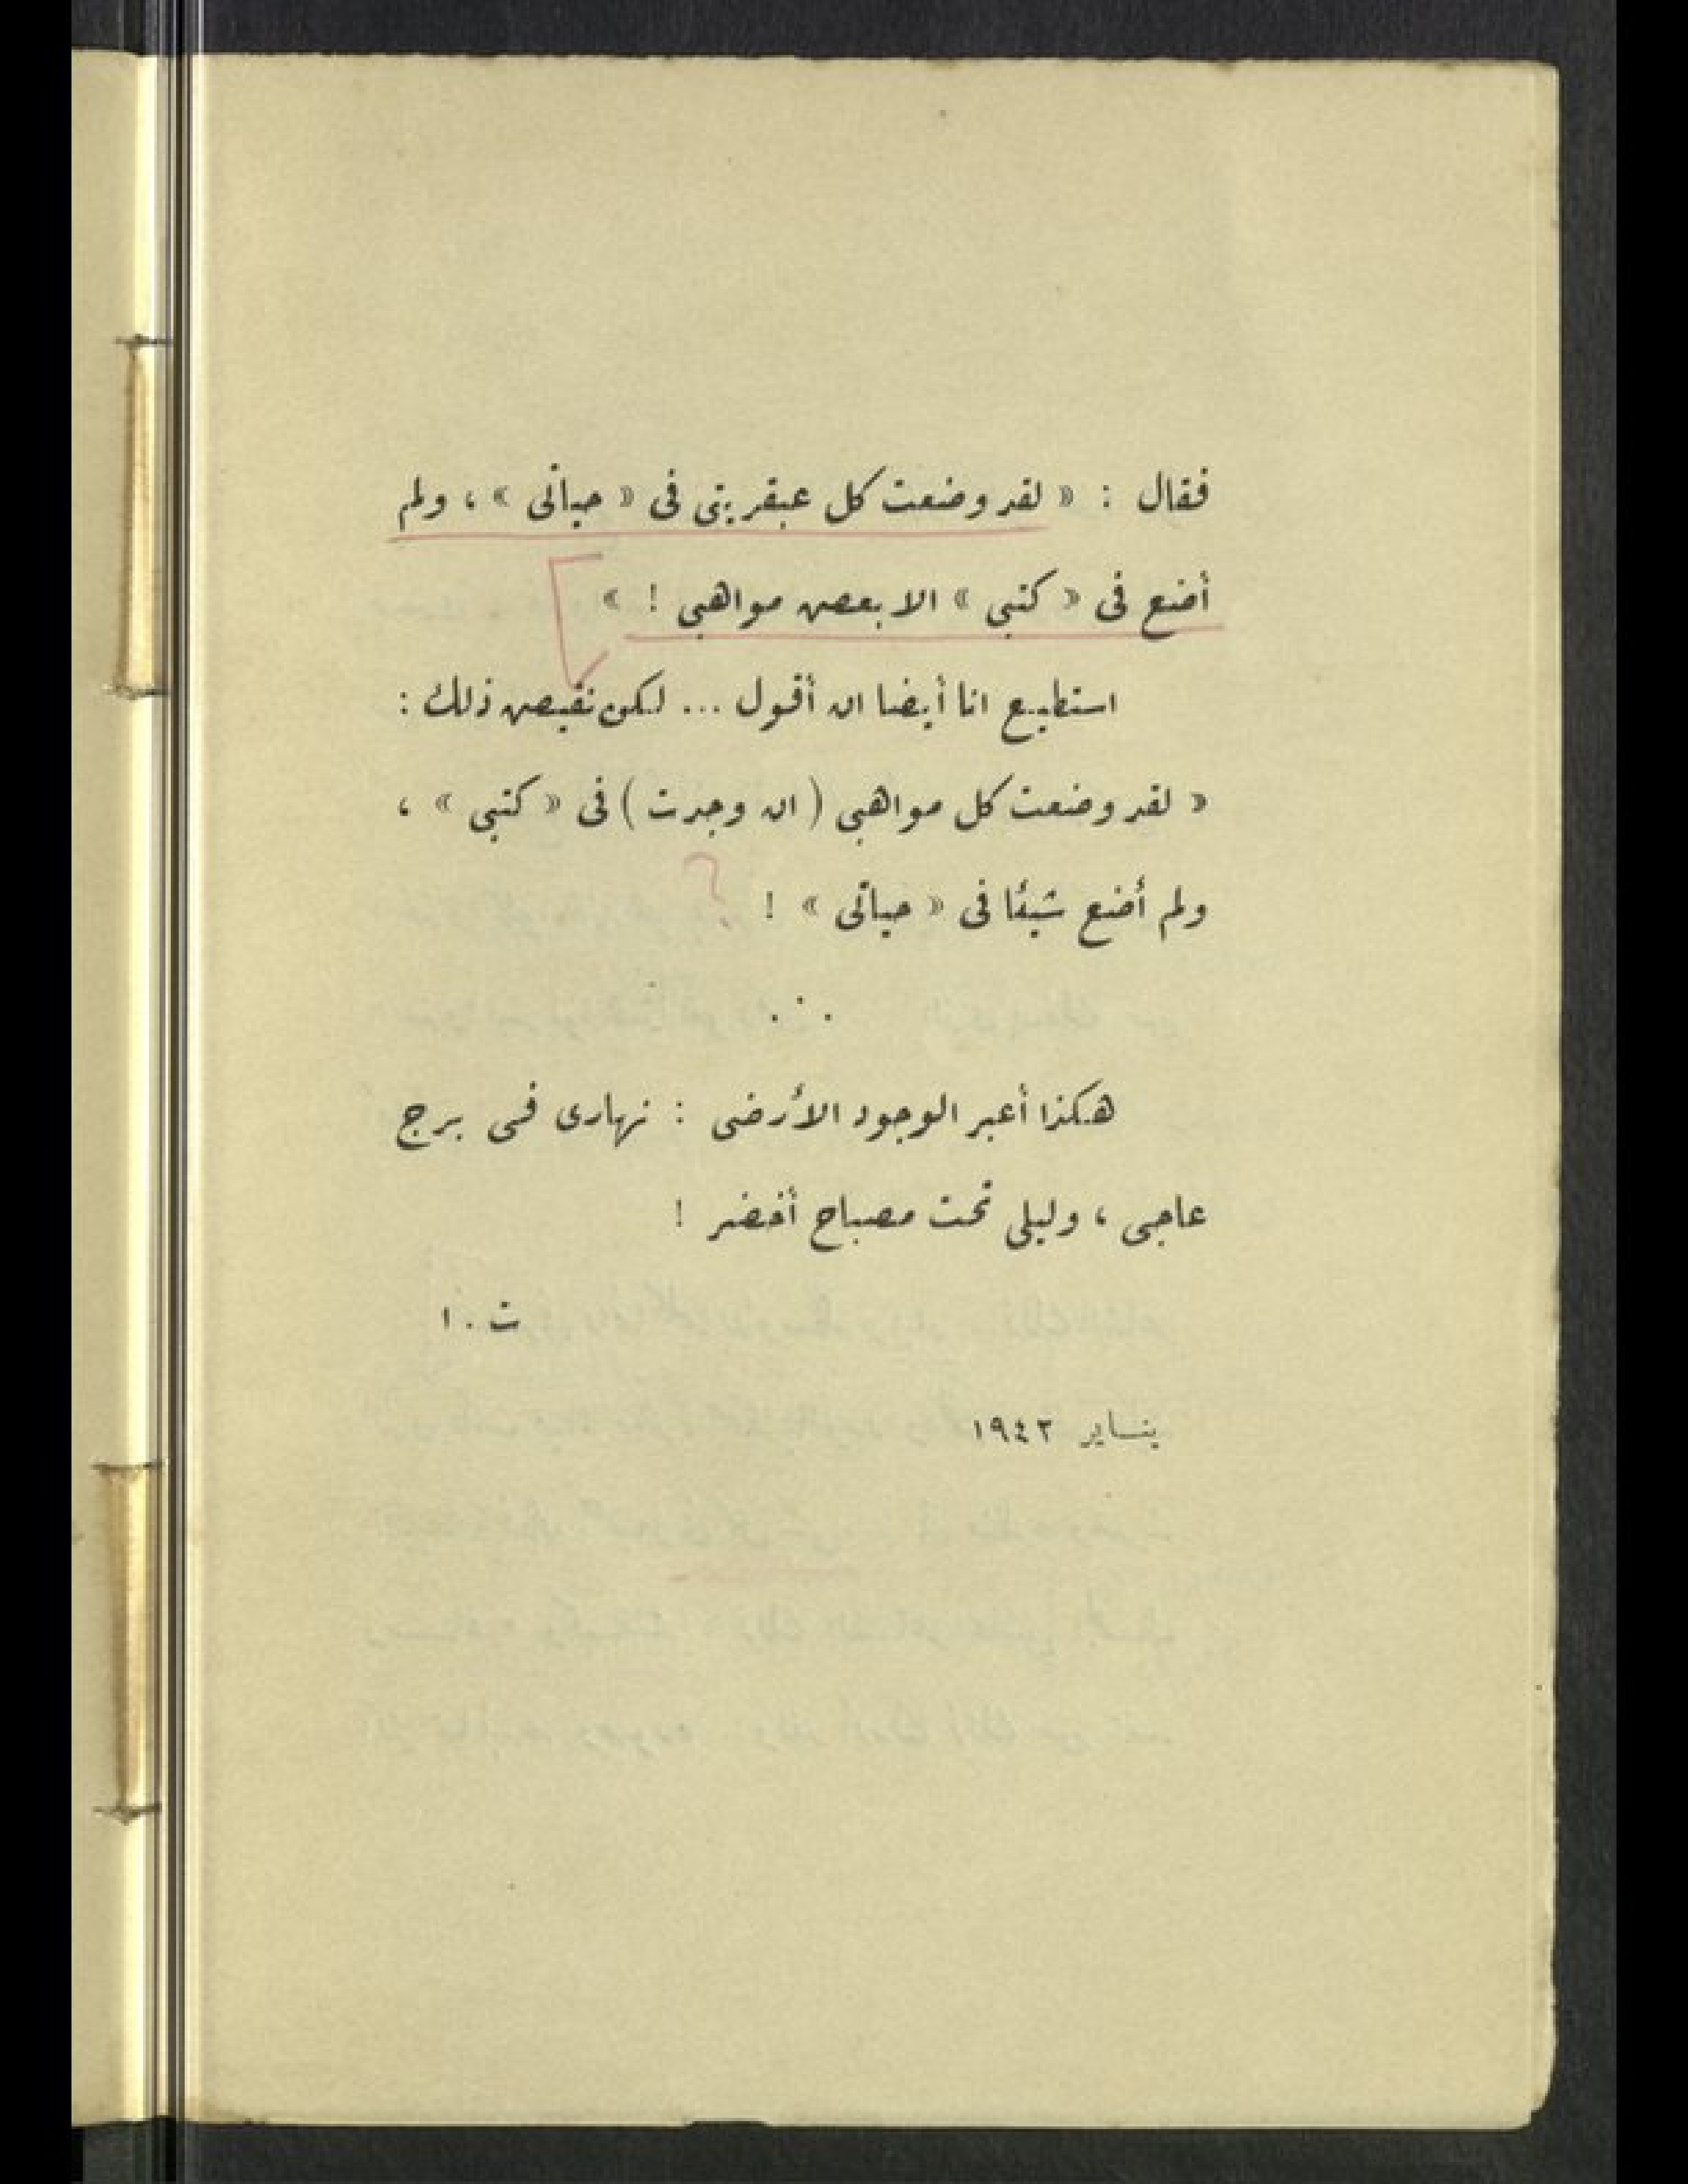 فقال : « لقد وضعت كل عبقريتى فى « حياتى » ، ولم
أضع فى « كتبى » الا بعض مواهبى ! »
استطيع انا أيضا ان أقول ... لكن نقيض ذلك :
« لقد وضعت كل مواهبى ( ان وجدت ) فى « كتبى » ،
ولم أضع شيئا فى « حياتى » !
؟
∴
هكذا أعبر الوجود الأرضى : نهارى فى برج
عاجى ، وليلى تحت مصباح أخضر !
ت . ا
يناير ١٩٤٢